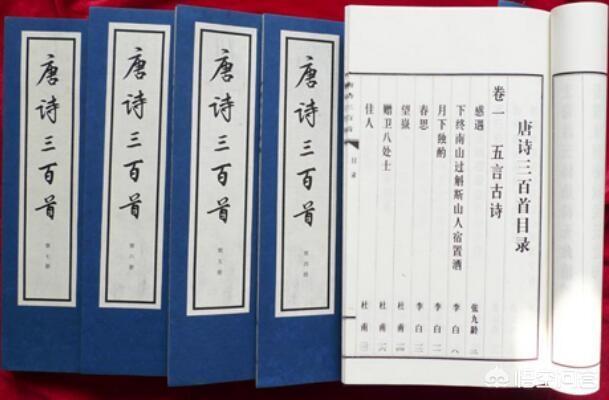 唐诗三百首
第七册
唐诗三百首
第六册
唐诗三百首
第五册
唐诗三百首
第四册
唐诗三百首目录
卷一 五言古诗
感遇 张九龄
下终南山过斛斯山人宿置酒 李白
月下独酌 李白
春思 李白
望嶽 杜甫
赠卫八处士 杜甫
佳人 杜甫
唐诗三百首 目录
悟空问答